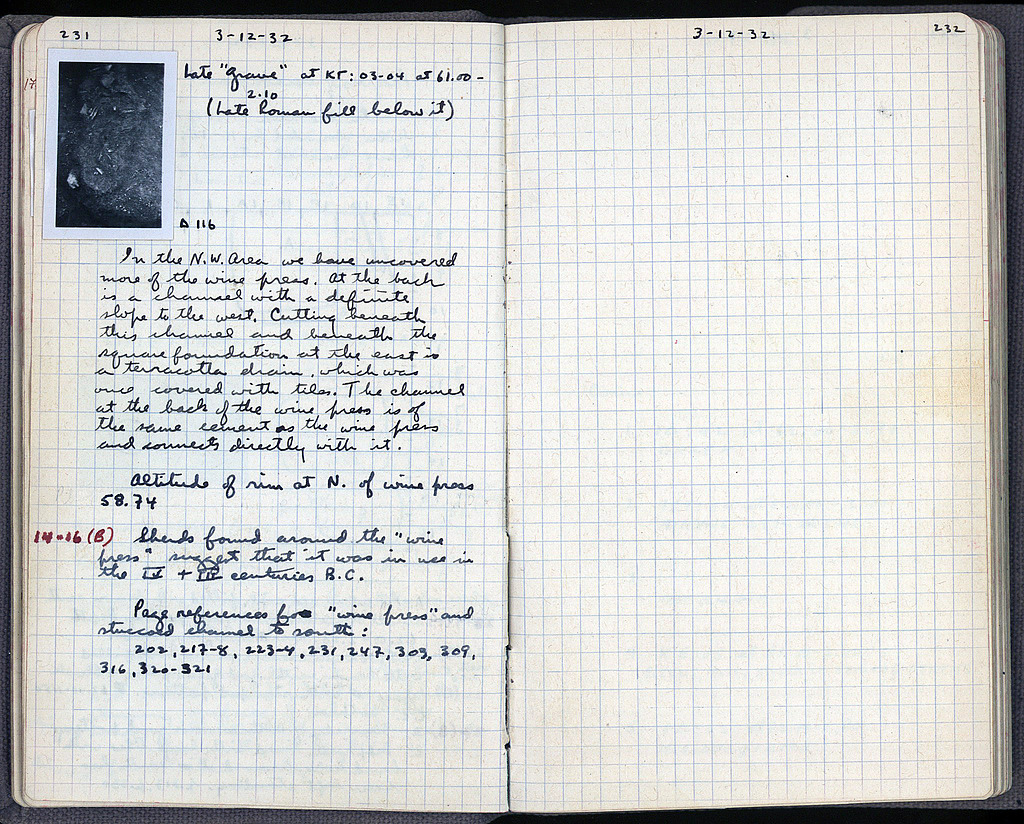 231
3-12-32
Late "Grave" at ΚΓ: 03-04 at 61.00 -
2.10
(Late Roman fill below it)
Δ 116
In the N.W. Area we have uncovered
more of the wine press. At the back
is a channel with a definite
slope to the west. Cutting beneath
this channel and beneath the
square foundation at the east is
a terracotta drain, which was
once covered with tiles. The channel
at the back of the wine press is of
the same cement as the wine press
and connects directly with it.
Altitude of rim at N. of wine press
58.74
14-16 (B) Sherds found around the "wine
press" suggest that it was in use in
the IV + III centuries B.C.
Page references for "wine press" and
stuccoed channel to south:
202, 217-8, 223-4, 231, 247, 303, 309,
316, 320-321
3-12-32
232